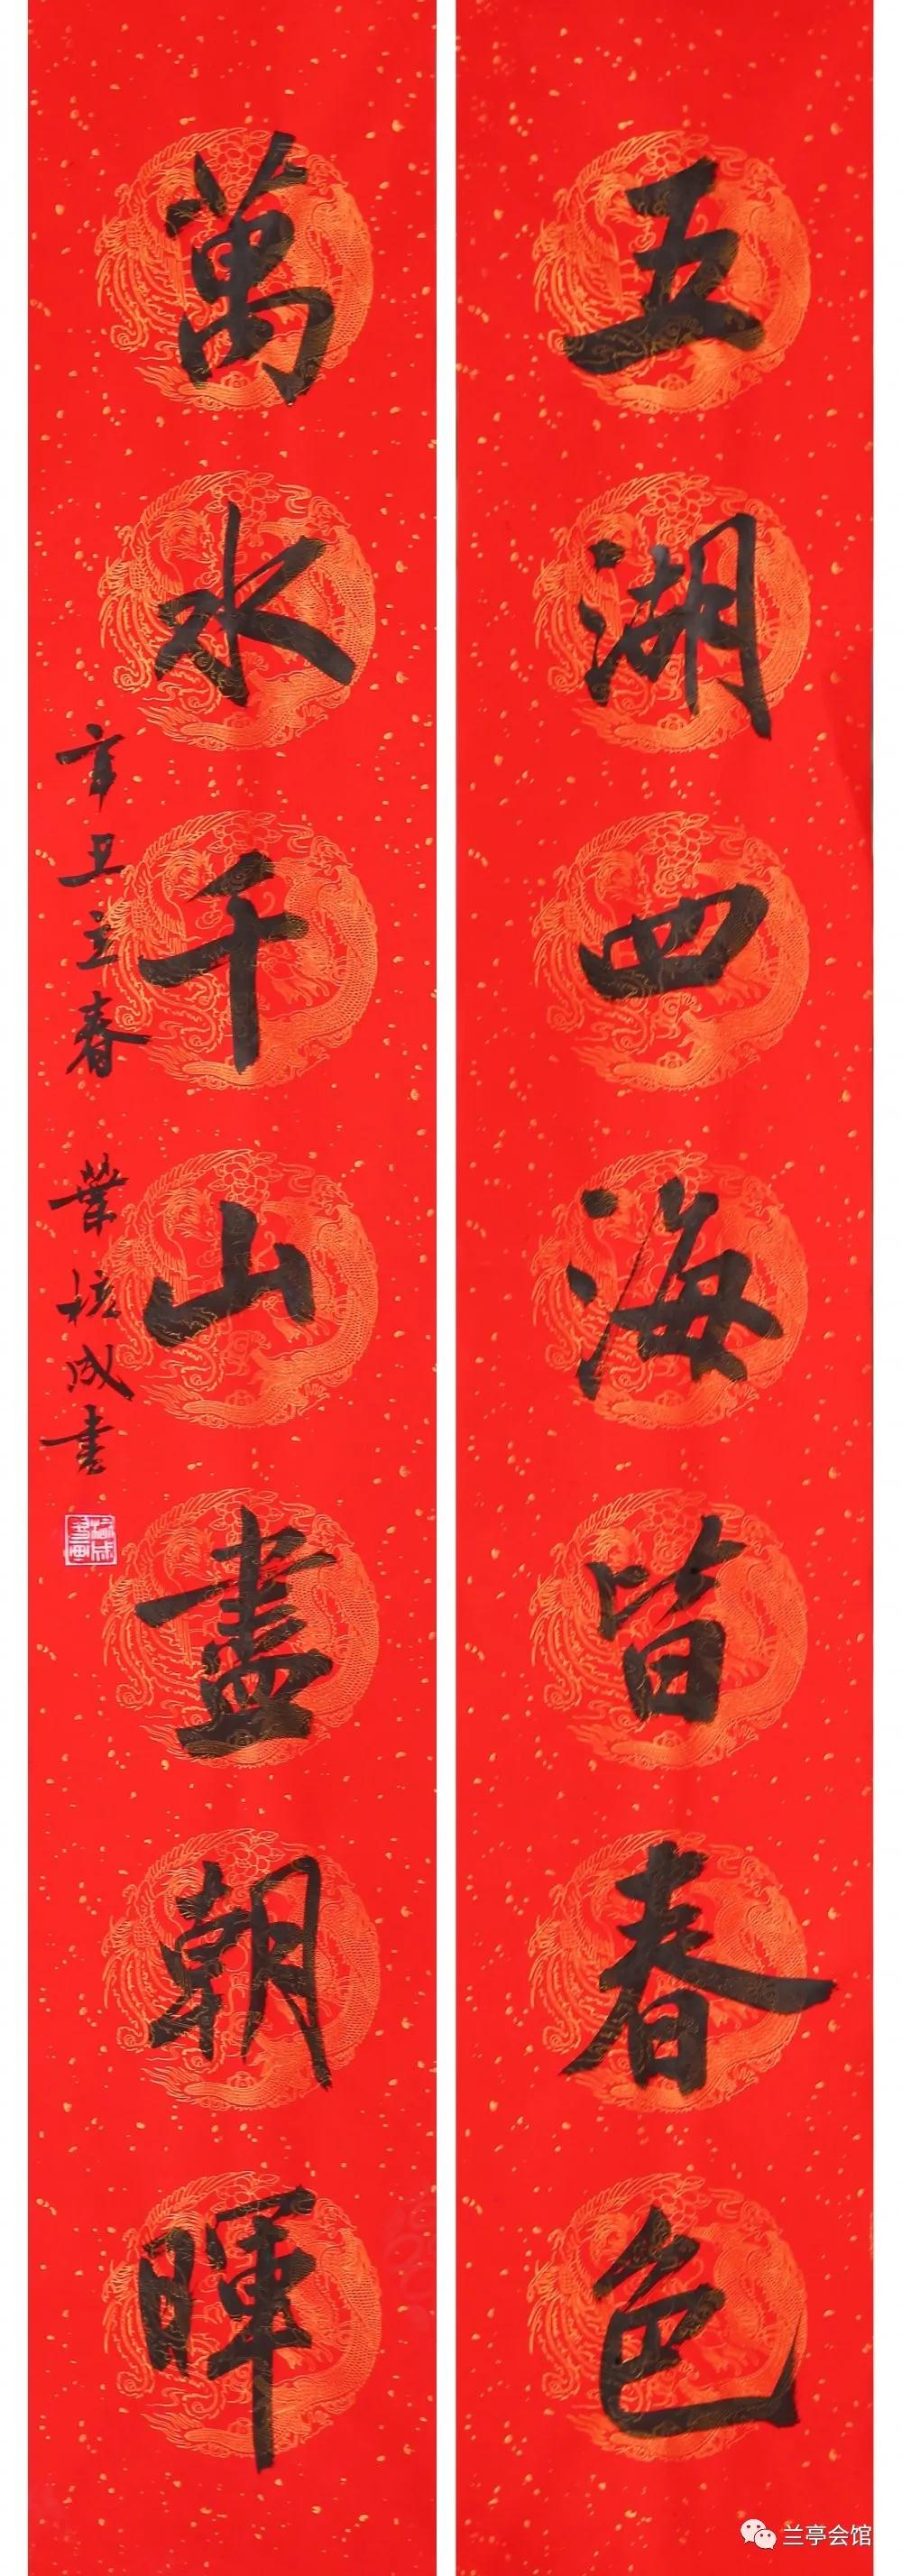 五湖四海皆春色
萬水千山盡朝暉
辛丑立春
成書
兰亭会馆